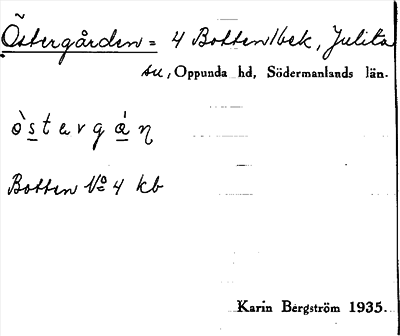 Östergården = 4 Botten 1 bek, Julita
su, Oppunda hd, Södermanlands län.
ò̀s̲t ə r g å̲̀ ɳ
Botten No 4 kb
Karin Bergström 1935.